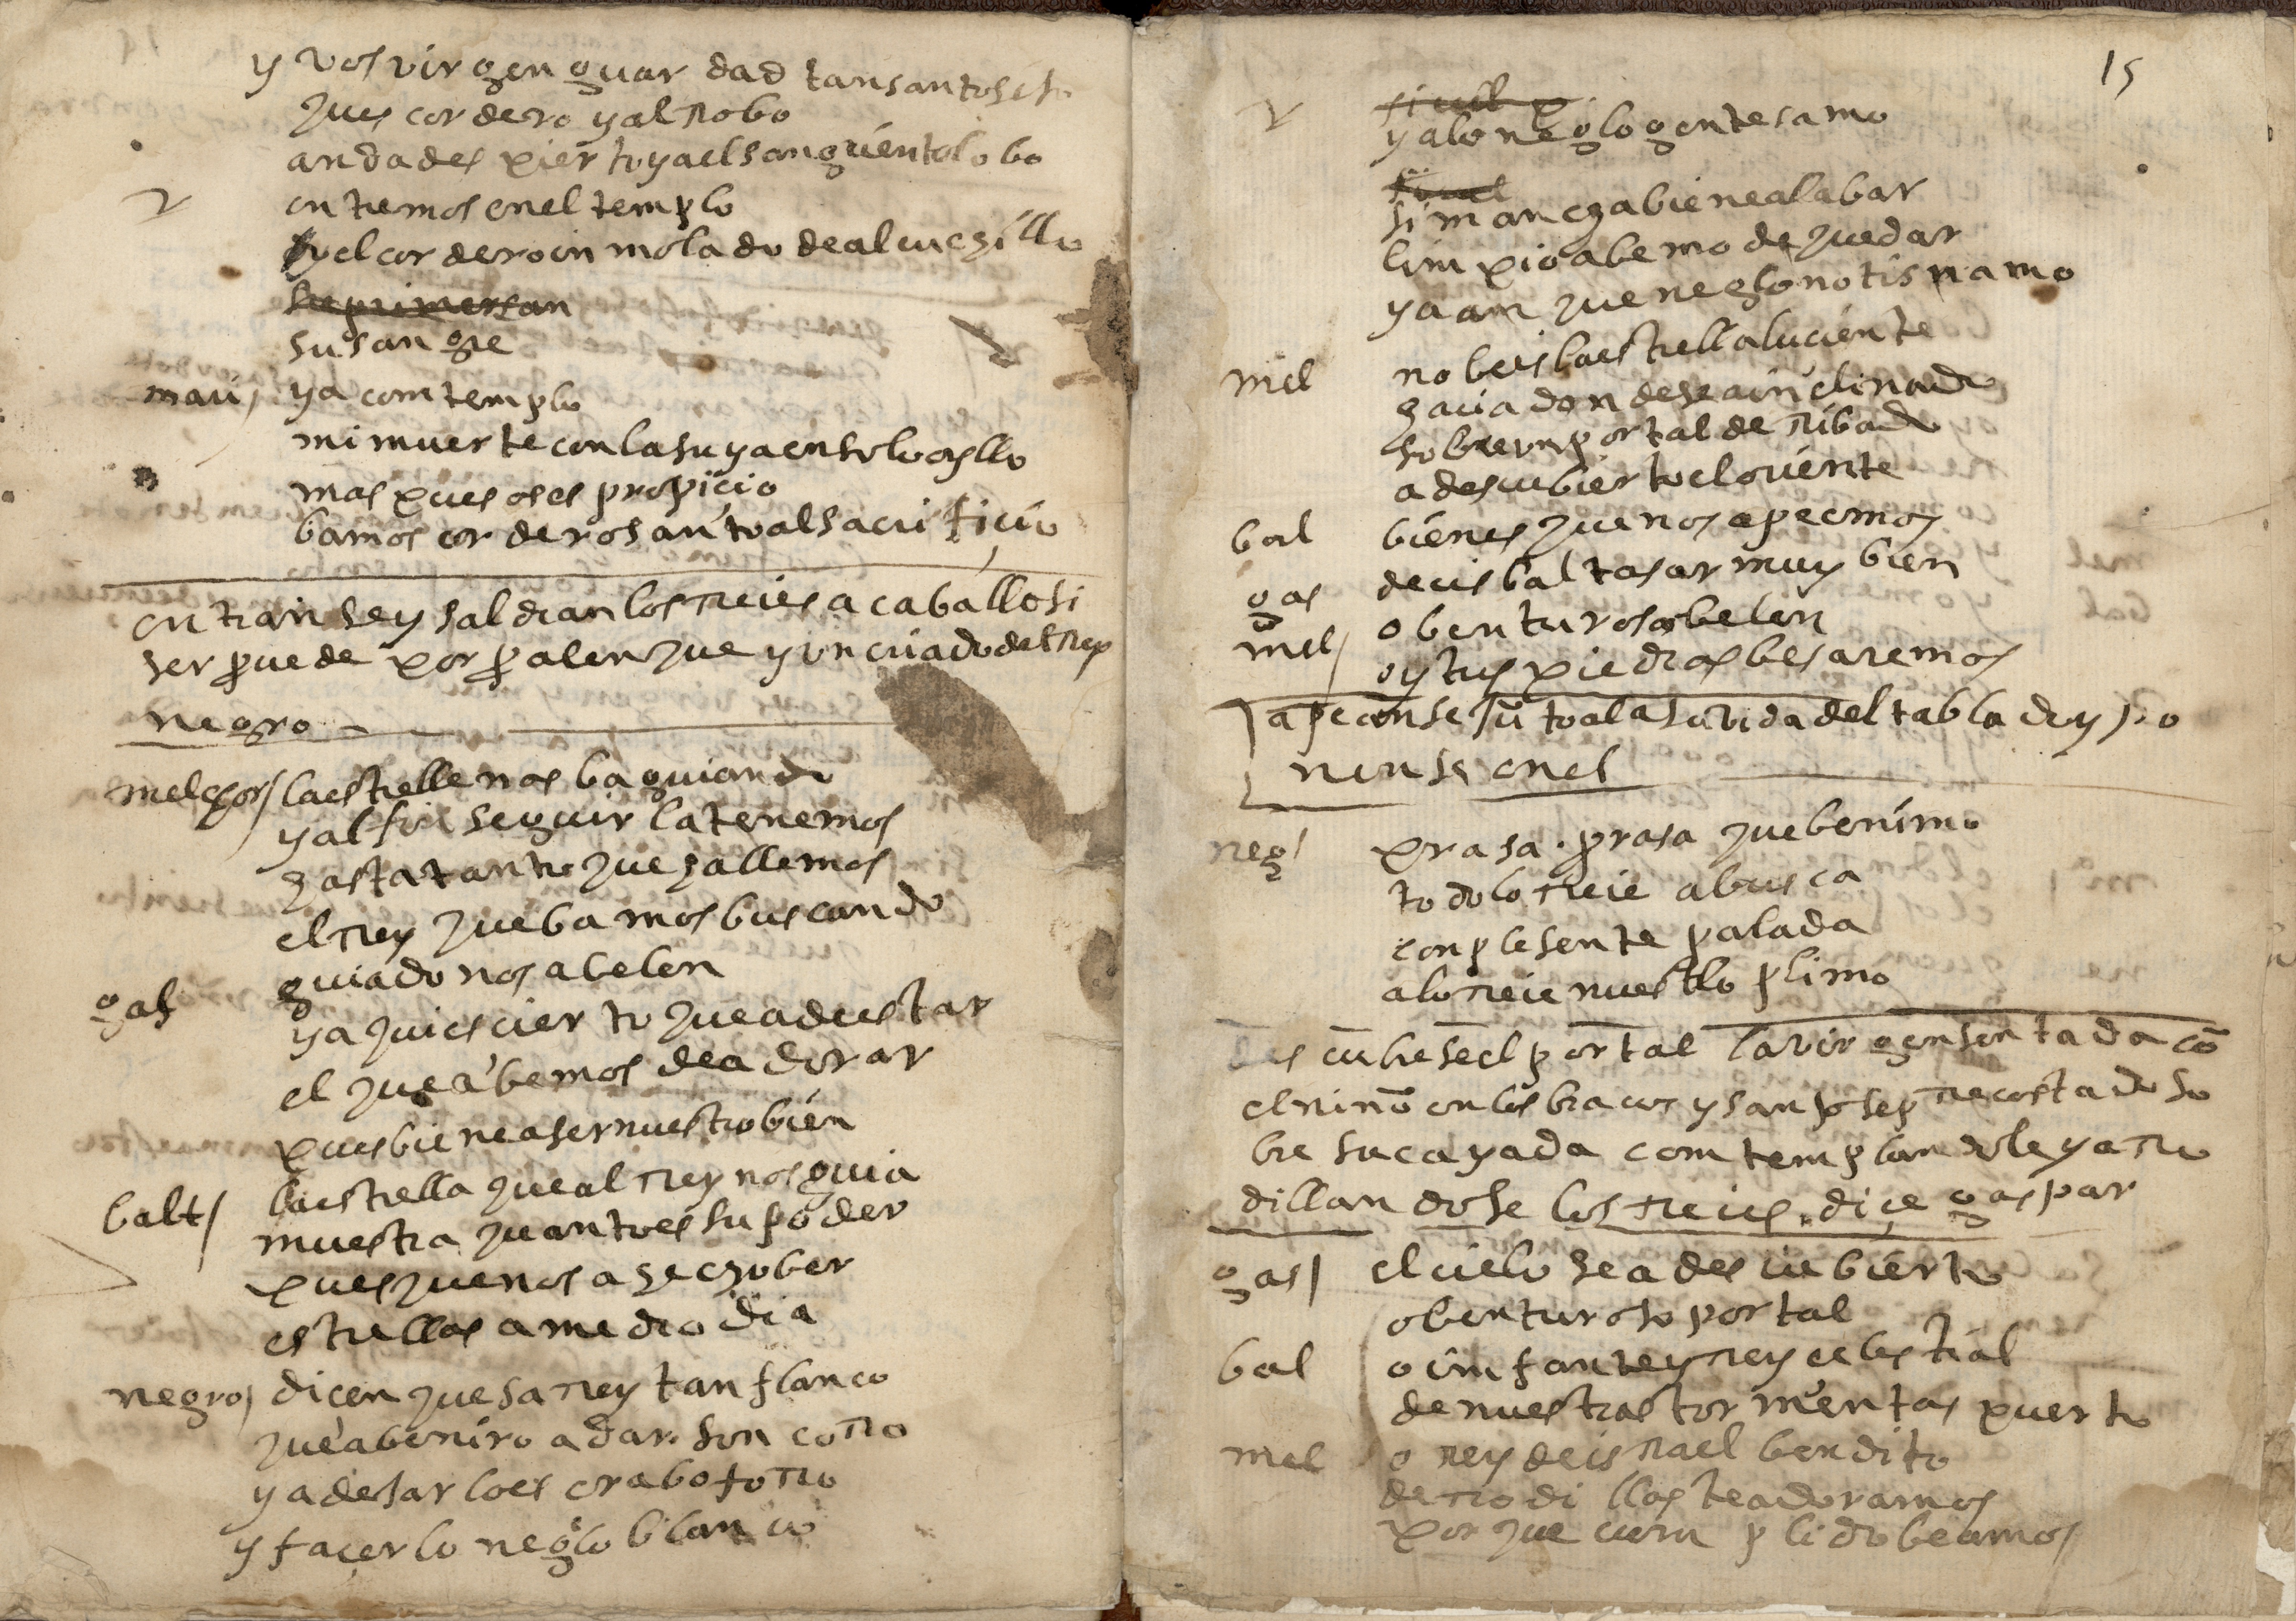 y vos virgen guardad tan santo
ques cordero y al robo
anda despierto ya el sangriento lobo
entremos en el templo
y el cordero inmolado de al cuchillo
su sangre
mari / ya comtemplo
mi muerte con la suya en solo oyllo
mas pues os es propiçio
bamos cordero santo al sacrifiçio
entranse y saldran los reies a caballo si
ser puede por palenque y un criado del rey
negro
melchor / la estrella nos ba guiando
y al fin seguirla tenemos
hasta tanto que hallemos
el rey que bamos buscando
guiadonos a belen
gas
ya qui es cierto que a de estar
el que abemos de adorar
pues biene a ser nuestro bien
balt / la estrella que al rey nos guia
muestra quanto es su poder
pues que nos a hecho ber
estrellas a medio dia
negro / dicen que sa rey tan flanco
que a beniro a dar son corro
y a desar loes crabo forro
y façer lo neglo blanco
15
y a lo neglo gente samo
si mancha biene a labar
limpio abemo de quedar
y aan que neglo no tisnamo
mel no beis la estrella luciente
hacia donde se a inclinado
sobre un portal deribado
a descubierto el oriente
bal bien es que nos apeemos
gas decis baltasar muy bien
mel / o benturoso belen
oy tus piedras besaremos
apeanse junto a la subida del tablado y po
nense en el
neg / prasa . prasa que benimo
todo lo reie a busca
con plesente palada
a lo reie nuestlo plimo
descubrese el portal la virgen sentada cō
el niño en los bracos y san josep recostado so
bre su cayada comtemplandole y arro
dillandose los reies . diçe gaspar
gas / el cielo se a descubierto
o benturoso portal
bal o imfante y rey celestial
de nuestras tormentas puerto
mel o rey de isrrael bendito
de rrodillas te adoramos
porque
beamos